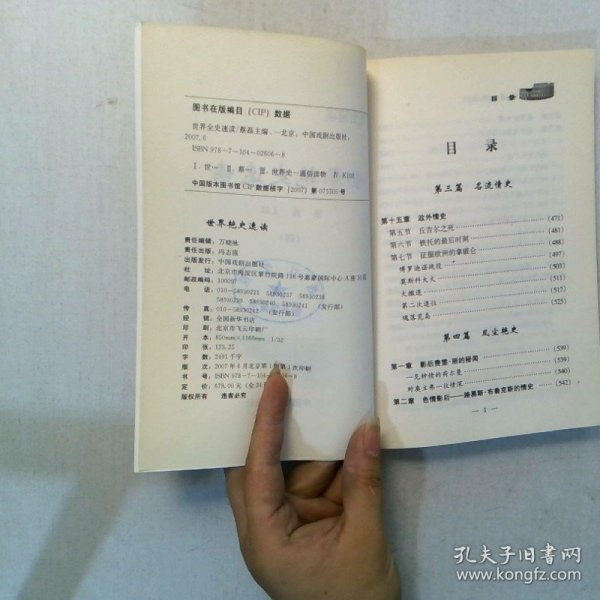 图书在版编目(CIP)数据
世界全史速读/蔡磊主编.—北京:中国戏剧出版社,
2007.6
ISBN 978-7-104-02606-8
Ⅰ.世… Ⅱ.蔡… Ⅲ.世界史—通俗读物 Ⅳ.K109
中国版本图书馆CIP数据核字(2007)第075305号
世界艳史速读
责任编辑:万晓咏
责任出版:冯志强
出版发行:中国戏剧出版社
社 址:北京市海淀区紫竹院路116号嘉豪国际中心A座10层
邮政编码:100097
电 话:010-58930237 58930238
58930239 58930240
58930241(发行部)
传 真:010-58930242(发行部)
经 销:全国新华书店
印 刷:北京市飞云印刷厂
开 本:850mm×1168mm 1/32
印 张:123.25
字 数:2491千字
版 次:2007年6月北京第1版第1次印刷
书 号:ISBN 978-7-104-02606-8
定 价:678.00元
版权所有 违者必究
目 录
目 录
第三篇 名流情史
第十五章 政外情史 (471)
第五节 丘吉尔之死 (481)
第六节 铁托的最后时刻 (488)
第七节 征服欧洲的拿破仑 (497)
博罗迪诺战役 (497)
莫斯科大火 (507)
大撤退 (516)
第二次退位 (517)
瑰落荒岛 (525)
第四篇 风尘艳史
第一章 影后费雯·丽的秘闻 (539)
一见钟情的荷尔曼 (539)
对奥立弗一往情深 (540)
第二章 色情影后——路易斯·布鲁克斯的情史 (542)
· 1 ·
孔夫子旧书网
www.kongfz.com